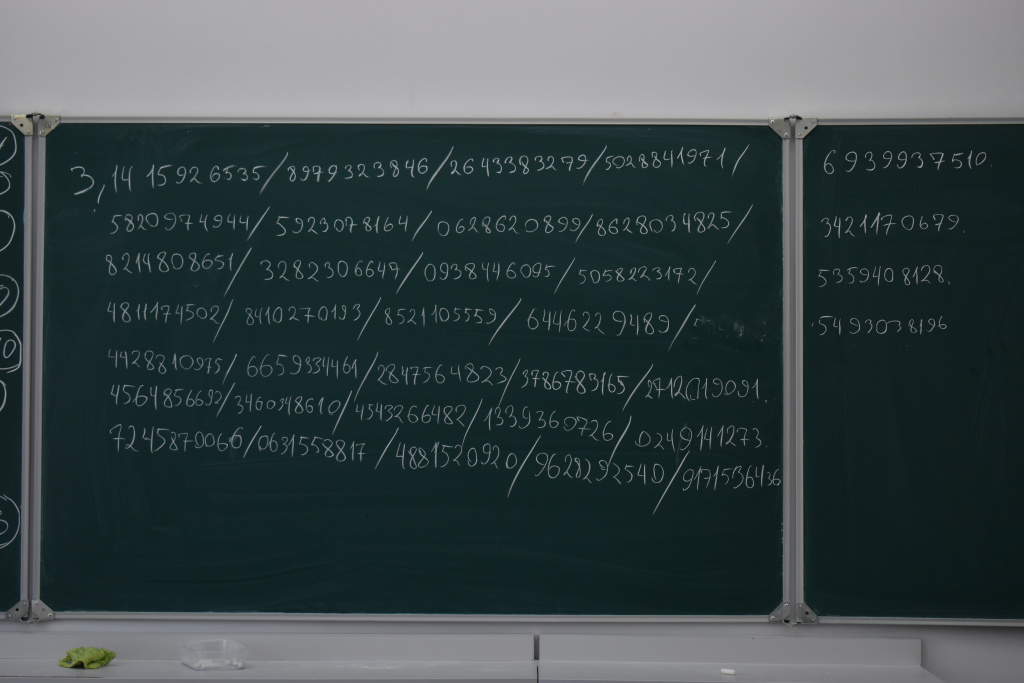 3,14 15926535/8979323846/2643383279/5028841971/ 6939937510.
5820974944/5923078164/0628620899/8628034825/ 3421170679.
8214808651/3282306647/0938446095/5058223172/ 5359408128.
4811174502/8410270193/8521105559/6446229489/ 5493038196
4428810975/6659334461/2847564823/3786783165/2712019091.
4564856692/3460348610/4543266482/1339360726/0249141273.
7245870066/0631558817/4881520920/9628292540/9171536436